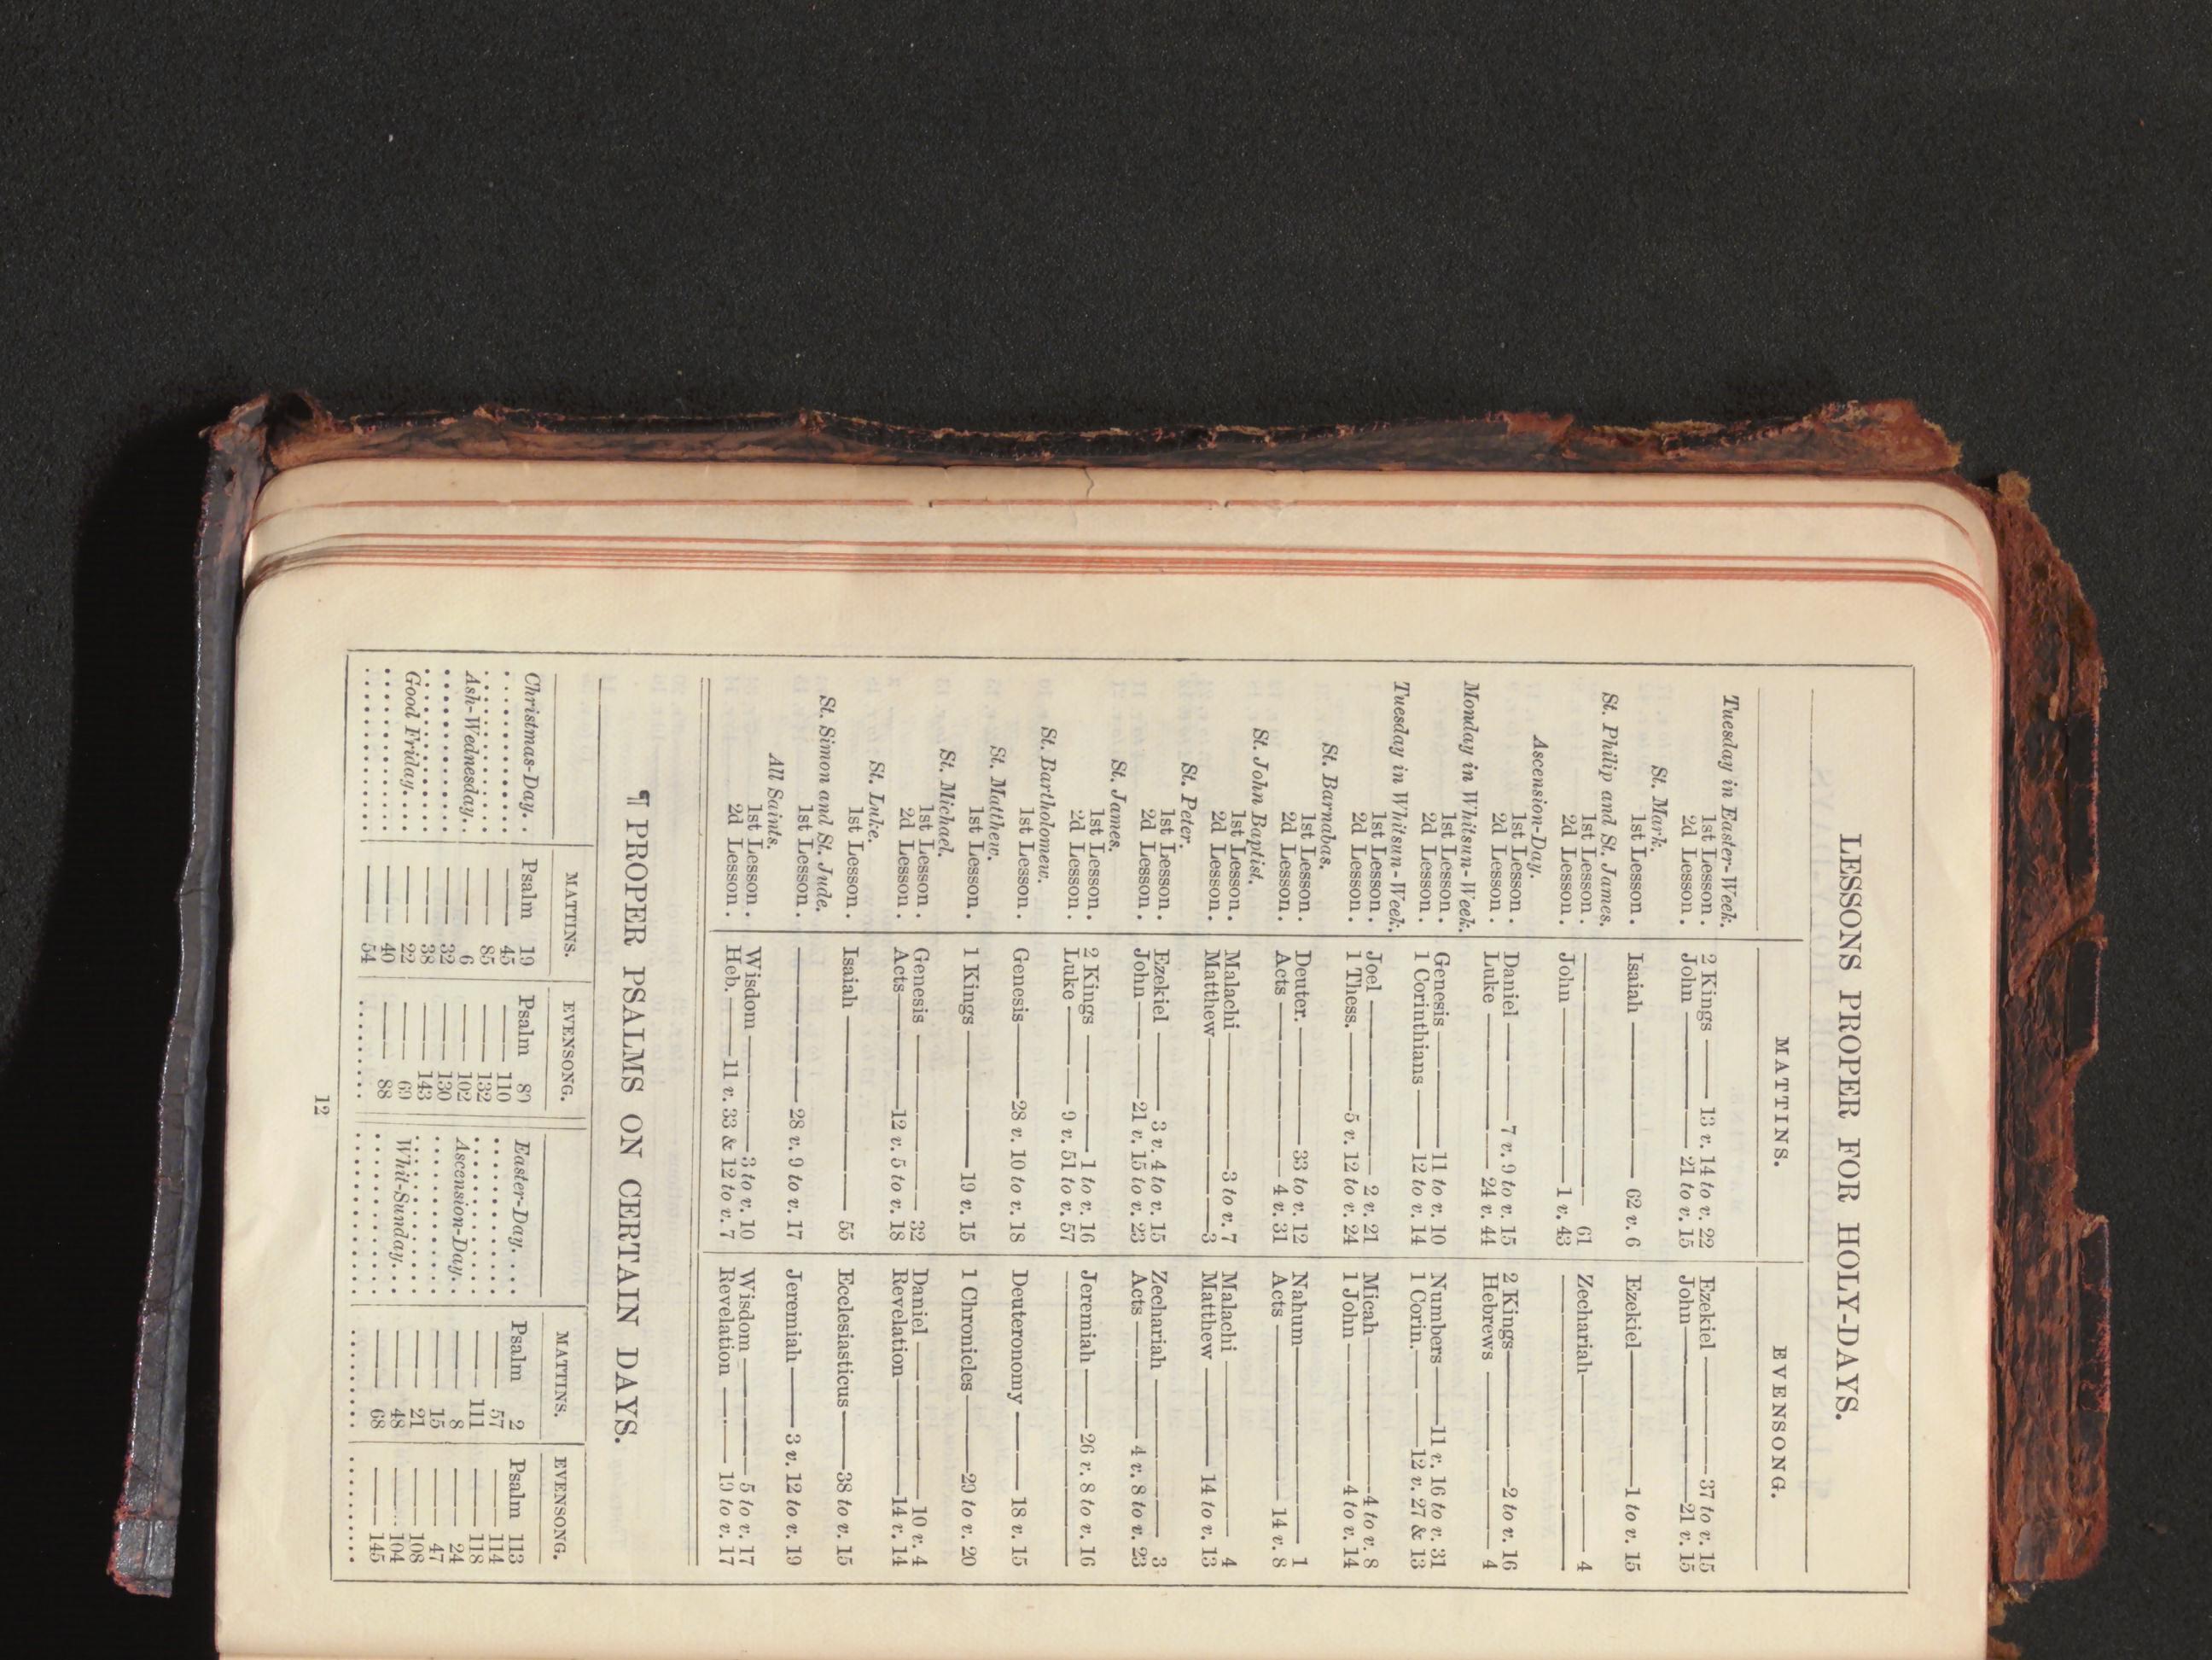 LESSONS PROPER FOR HOLY-DAYS.
MATTINS. EVENSONG.
Tuesday in Easter-Week.
1st Lesson. 2 Kings —— 13 v. 14 to v. 22 Ezekiel —— 37 to v. 15
2d Lesson. John —— 21 to v. 15 John —— 21 v. 15
St. Mark.
1st Lesson. Isaiah —— 62 v. 6 Ezekiel —— 1 to v. 15
St. Philip and St. James.
1st Lesson. —— 61 Zechariah —— 4
2d Lesson. John —— 1 v. 43 ——
Ascension-Day.
1st Lesson. Daniel —— 7 v. 9 to v. 15 2 Kings —— 2 to v. 16
2d Lesson. Luke —— 24 v. 44 Hebrews —— 4
Monday in Whitsun-Week.
1st Lesson. Genesis —— 11 to v. 10 Numbers —— 11 v. 16 to v. 31
2d Lesson. 1 Corinthians —— 12 to v. 14 1 Corin. —— 12 v. 27 & 13
Tuesday in Whitsun-Week.
1st Lesson. Joel —— 2 v. 21 Micah —— 4 to v. 8
2d Lesson. 1 Thess. —— 5 v. 12 to v. 24 1 John —— 4 to v. 14
St. Barnabas.
1st Lesson. Deuter. —— 33 to v. 12 Nahum —— 1
2d Lesson. Acts —— 4 v. 31 Acts —— 14 v. 8
St. John Baptist.
1st Lesson. Malachi —— 3 to v. 7 Malachi —— 4
2d Lesson. Matthew —— 3 Matthew —— 14 to v. 13
St. Peter.
1st Lesson. Ezekiel —— 3 v. 4 to v. 15 Zechariah —— 3
2d Lesson. John —— 21 v. 15 to v. 23 Acts —— 4 v. 8 to v. 23
St. James.
1st Lesson. 2 Kings —— 1 to v. 16 Jeremiah —— 26 v. 8 to v. 16
2d Lesson. Luke —— 9 v. 51 to v. 57 ——
St. Bartholomew.
1st Lesson. Genesis —— 28 v. 10 to v. 18 Deuteronomy —— 18 v. 15
St. Matthew.
1st Lesson. 1 Kings —— 19 v. 15 1 Chronicles —— 29 to v. 20
St. Michael.
1st Lesson. Genesis —— 32 Daniel —— 10 v. 4
2d Lesson. Acts —— 12 v. 5 to v. 18 Revelation —— 14 v. 14
St. Luke.
1st Lesson. Isaiah —— 55 Ecclesiasticus —— 38 to v. 15
St. Simon and St. Jude.
1st Lesson. —— 28 v. 9 to v. 17 Jeremiah —— 3 v. 12 to v. 19
All Saints.
1st Lesson. Wisdom —— 3 to v. 10 Wisdom —— 5 to v. 17
2d Lesson. Heb. —— 11 v. 33 & 12 to v. 7 Revelation —— 19 to v. 17
¶ PROPER PSALMS ON CERTAIN DAYS.
MATTINS. EVENSONG. MATTINS. EVENSONG.
Christmas-Day.. Psalm 19 Psalm 89 Easter-Day.... Psalm 2 Psalm 113
.......... —— 45 —— 110 .......... —— 57 —— 114
.......... —— 85 —— 132 .......... —— 111 —— 118
Ash-Wednesday.. —— 6 —— 102 Ascension-Day. —— 8 —— 24
.......... —— 32 —— 130 .......... —— 15 —— 47
.......... —— 38 —— 143 .......... —— 21 —— 108
Good Friday.... —— 22 —— 69 Whit-Sunday... —— 48 —— 104
.......... —— 40 —— 88 .......... —— 68 —— 145
.......... —— 54 .......... .......... .......... ..........
12